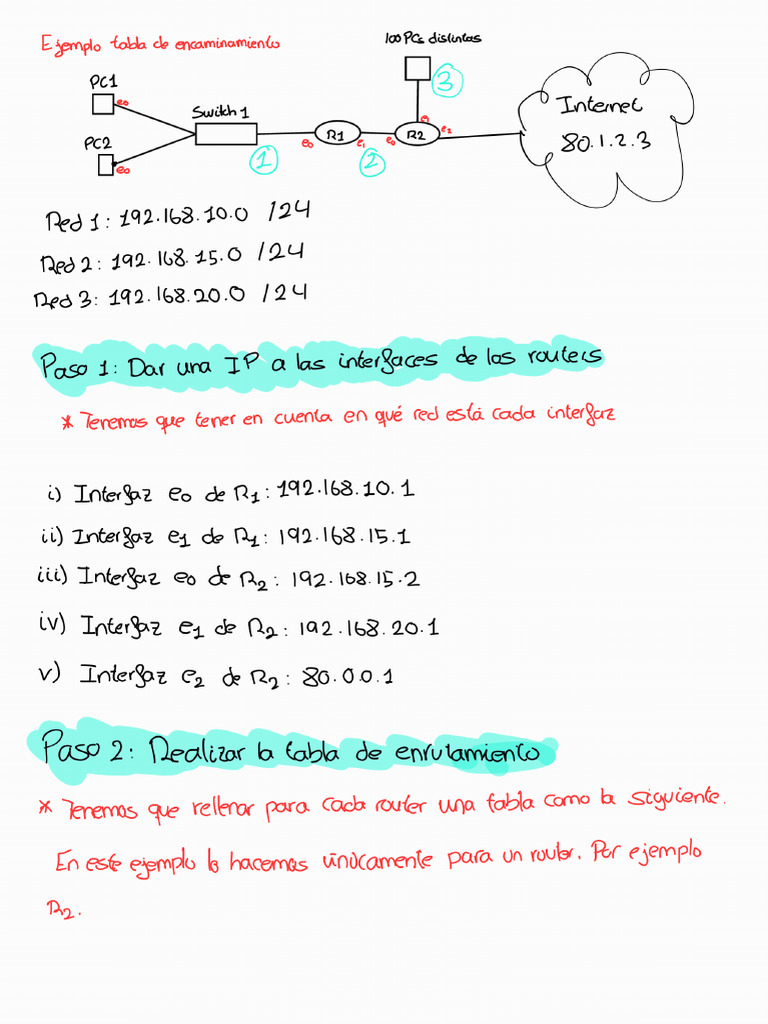 Ejemplo tabla de encaminamiento
100 PCs distintas
PC1
e0
3
Switch 1
Internet
80.1.2.3
PC2
e0
1
e0
R1
e1
2
e0
R2
e1
e2
Red 1: 192.168.10.0 /24
Red 2: 192.168.15.0 /24
Red 3: 192.168.20.0 /24
Paso 1: Dar una IP a las interfaces de los routers
* Tenemos que tener en cuenta en qué red está cada interfaz
i) Interfaz e0 de R1: 192.168.10.1
ii) Interfaz e1 de R1: 192.168.15.1
iii) Interfaz e0 de R2: 192.168.15.2
iv) Interfaz e1 de R2: 192.168.20.1
v) Interfaz e2 de R2: 80.0.0.1
Paso 2: Realizar la tabla de enrutamiento
* Tenemos que rellenar para cada router una tabla como la siguiente.
En este ejemplo lo hacemos únicamente para un router. Por ejemplo
R2.